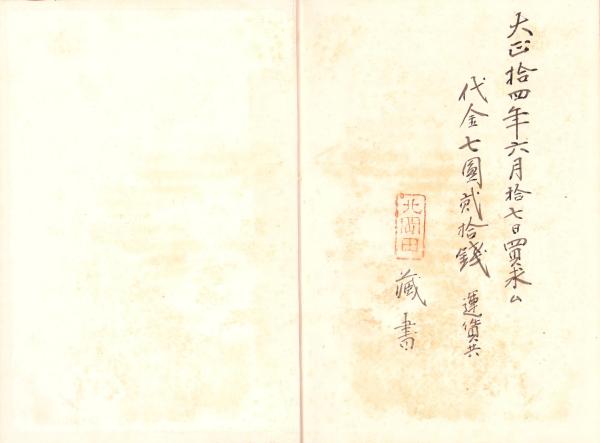 大正拾四年六月拾七日買求ム
代金七圓貳拾錢 運賃共
北岡田
藏書